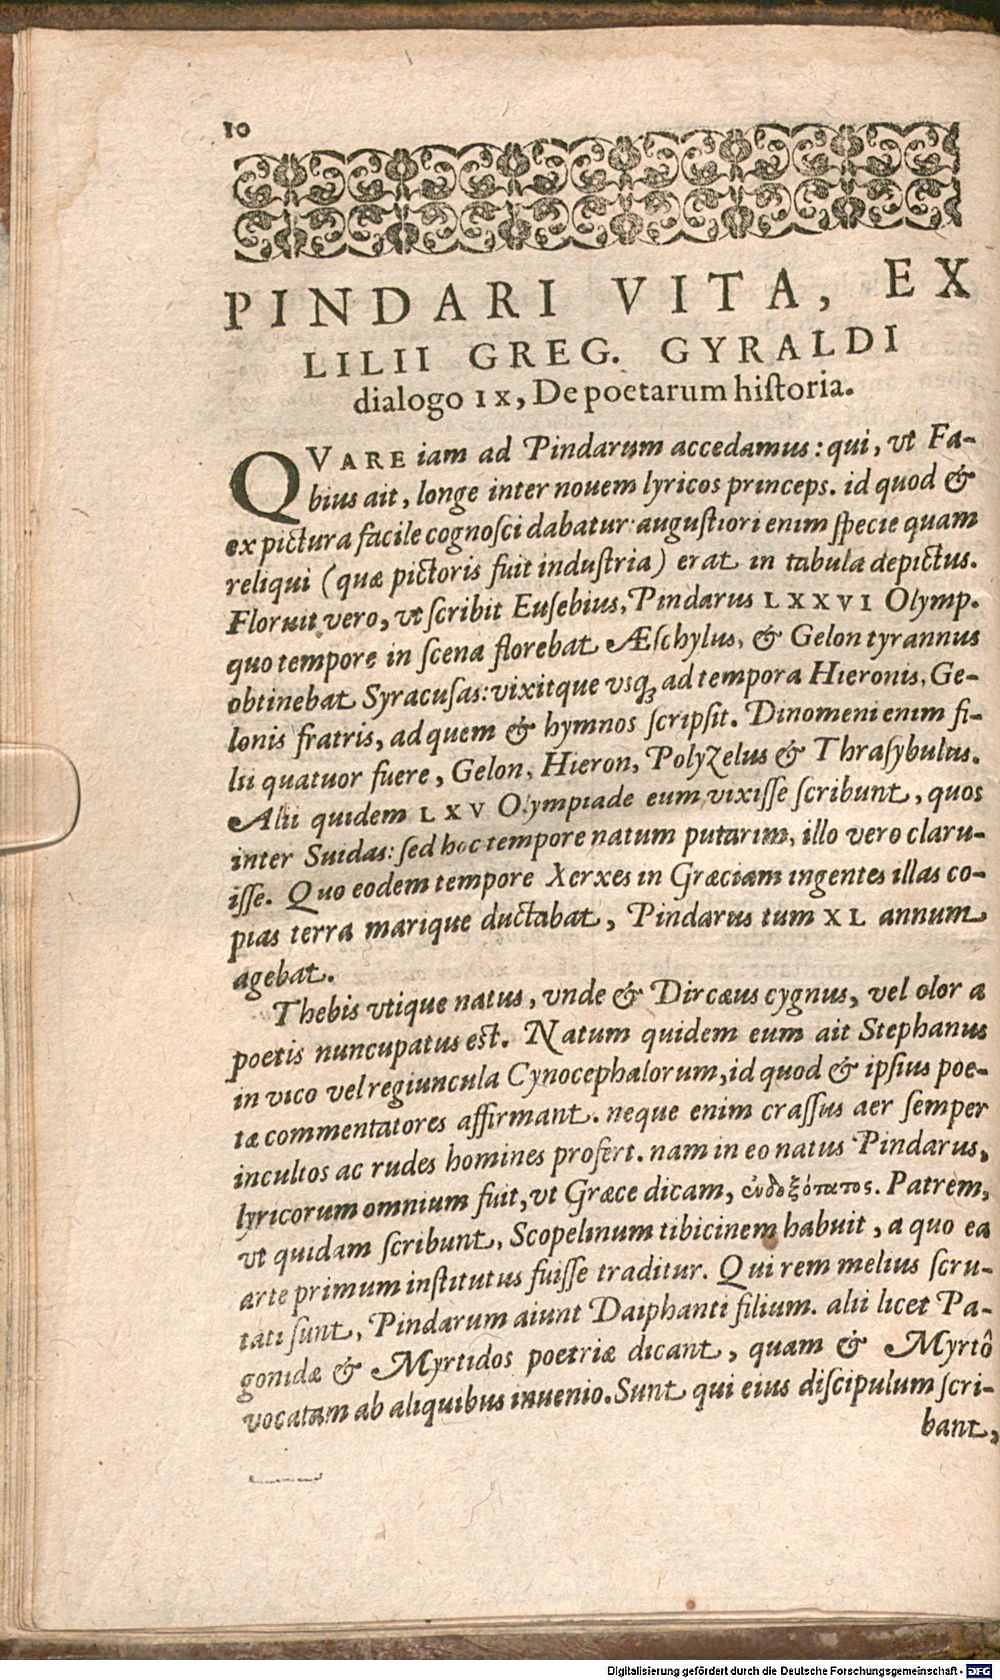 10
PINDARI VITA, EX
LILII GREG. GYRALDI
dialogo IX, De poetarum historia.
QVARE iam ad Pindarum accedamus: qui, vt Fa-
bius ait, longe inter nouem lyricos princeps. id quod &
ex pictura facile cognosci dabatur: augustiori enim specie quam
reliqui (quæ pictoris fuit industria) erat in tabula depictus.
Floruit vero, vt scribit Eusebius, Pindarus LXXVI Olymp.
quo tempore in scena florebat Æschylus, & Gelon tyrannus
obtinebat Syracusas: vixitque vsq; ad tempora Hieronis, Ge-
lonis fratris, ad quem & hymnos scripsit. Dinomeni enim fi-
lii quatuor fuere, Gelon, Hieron, Polyzelus & Thrasybulus.
Alii quidem LXV Olympiade eum vixisse scribunt, quos
inter Suidas: sed hoc tempore natum putarim, illo vero claru-
isse. Quo eodem tempore Xerxes in Græciam ingentes illas co-
pias terra marique ductabat, Pindarus tum XL annum
agebat.
Thebis vtique natus, vnde & Dircæus cygnus, vel olor a
poetis nuncupatus est. Natum quidem eum ait Stephanus
in vico vel regiuncula Cynocephalorum, id quod & ipsius poe-
tæ commentatores affirmant. neque enim crassus aer semper
incultos ac rudes homines profert. nam in eo natus Pindarus,
lyricorum omnium fuit, vt Græce dicam, ἐνδοξότατος. Patrem,
vt quidam scribunt, Scopelinum tibicinem habuit, a quo ea
arte primum institutus fuisse traditur. Qui rem melius scru-
tati sunt, Pindarum aiunt Daiphanti filium. alii licet Pa-
gonidæ & Myrtidos poetriæ dicant, quam & Myrtô
vocatam ab aliquibus inuenio. Sunt qui eius discipulum scri-
bant,
Digitalisierung gefördert durch die Deutsche Forschungsgemeinschaft - DFG